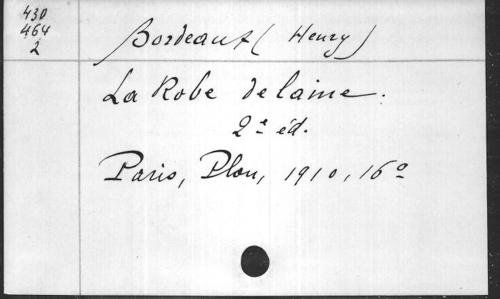 430
464
2
Bordeaux (Henry)
La Robe de laine.
2e éd.
Paris, Plon, 1910, 16º